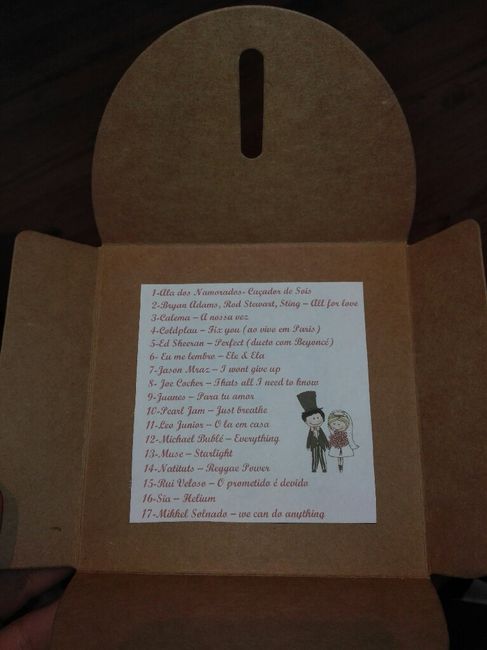 1-Ala dos Namorados- Caçador de Sois
2-Bryan Adams, Rod Stewart, Sting – All for love
3-Calema – A nossa vez
4-Coldplau – Fix you (ao vivo em Paris)
5-Ed Sheeran – Perfect (dueto com Beyoncé)
6- Eu me lembro – Ele & Ela
7-Jason Mraz – I wont give up
8- Joe Cocker – Thats all I need to know
9-Juanes – Para tu amor
10-Pearl Jam – Just breathe
11-Leo Junior – O la em casa
12-Michael Bublé – Everything
13-Muse – Starlight
14-Natituts – Reggae Power
15-Rui Veloso – O prometido é devido
16-Sia – Helium
17-Mikkel Solnado – we can do anything